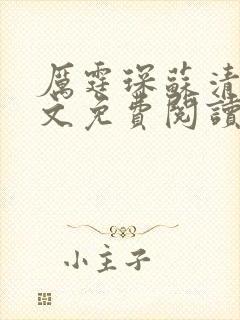 厲霆琛蘇清
文免費閱讀
小主子